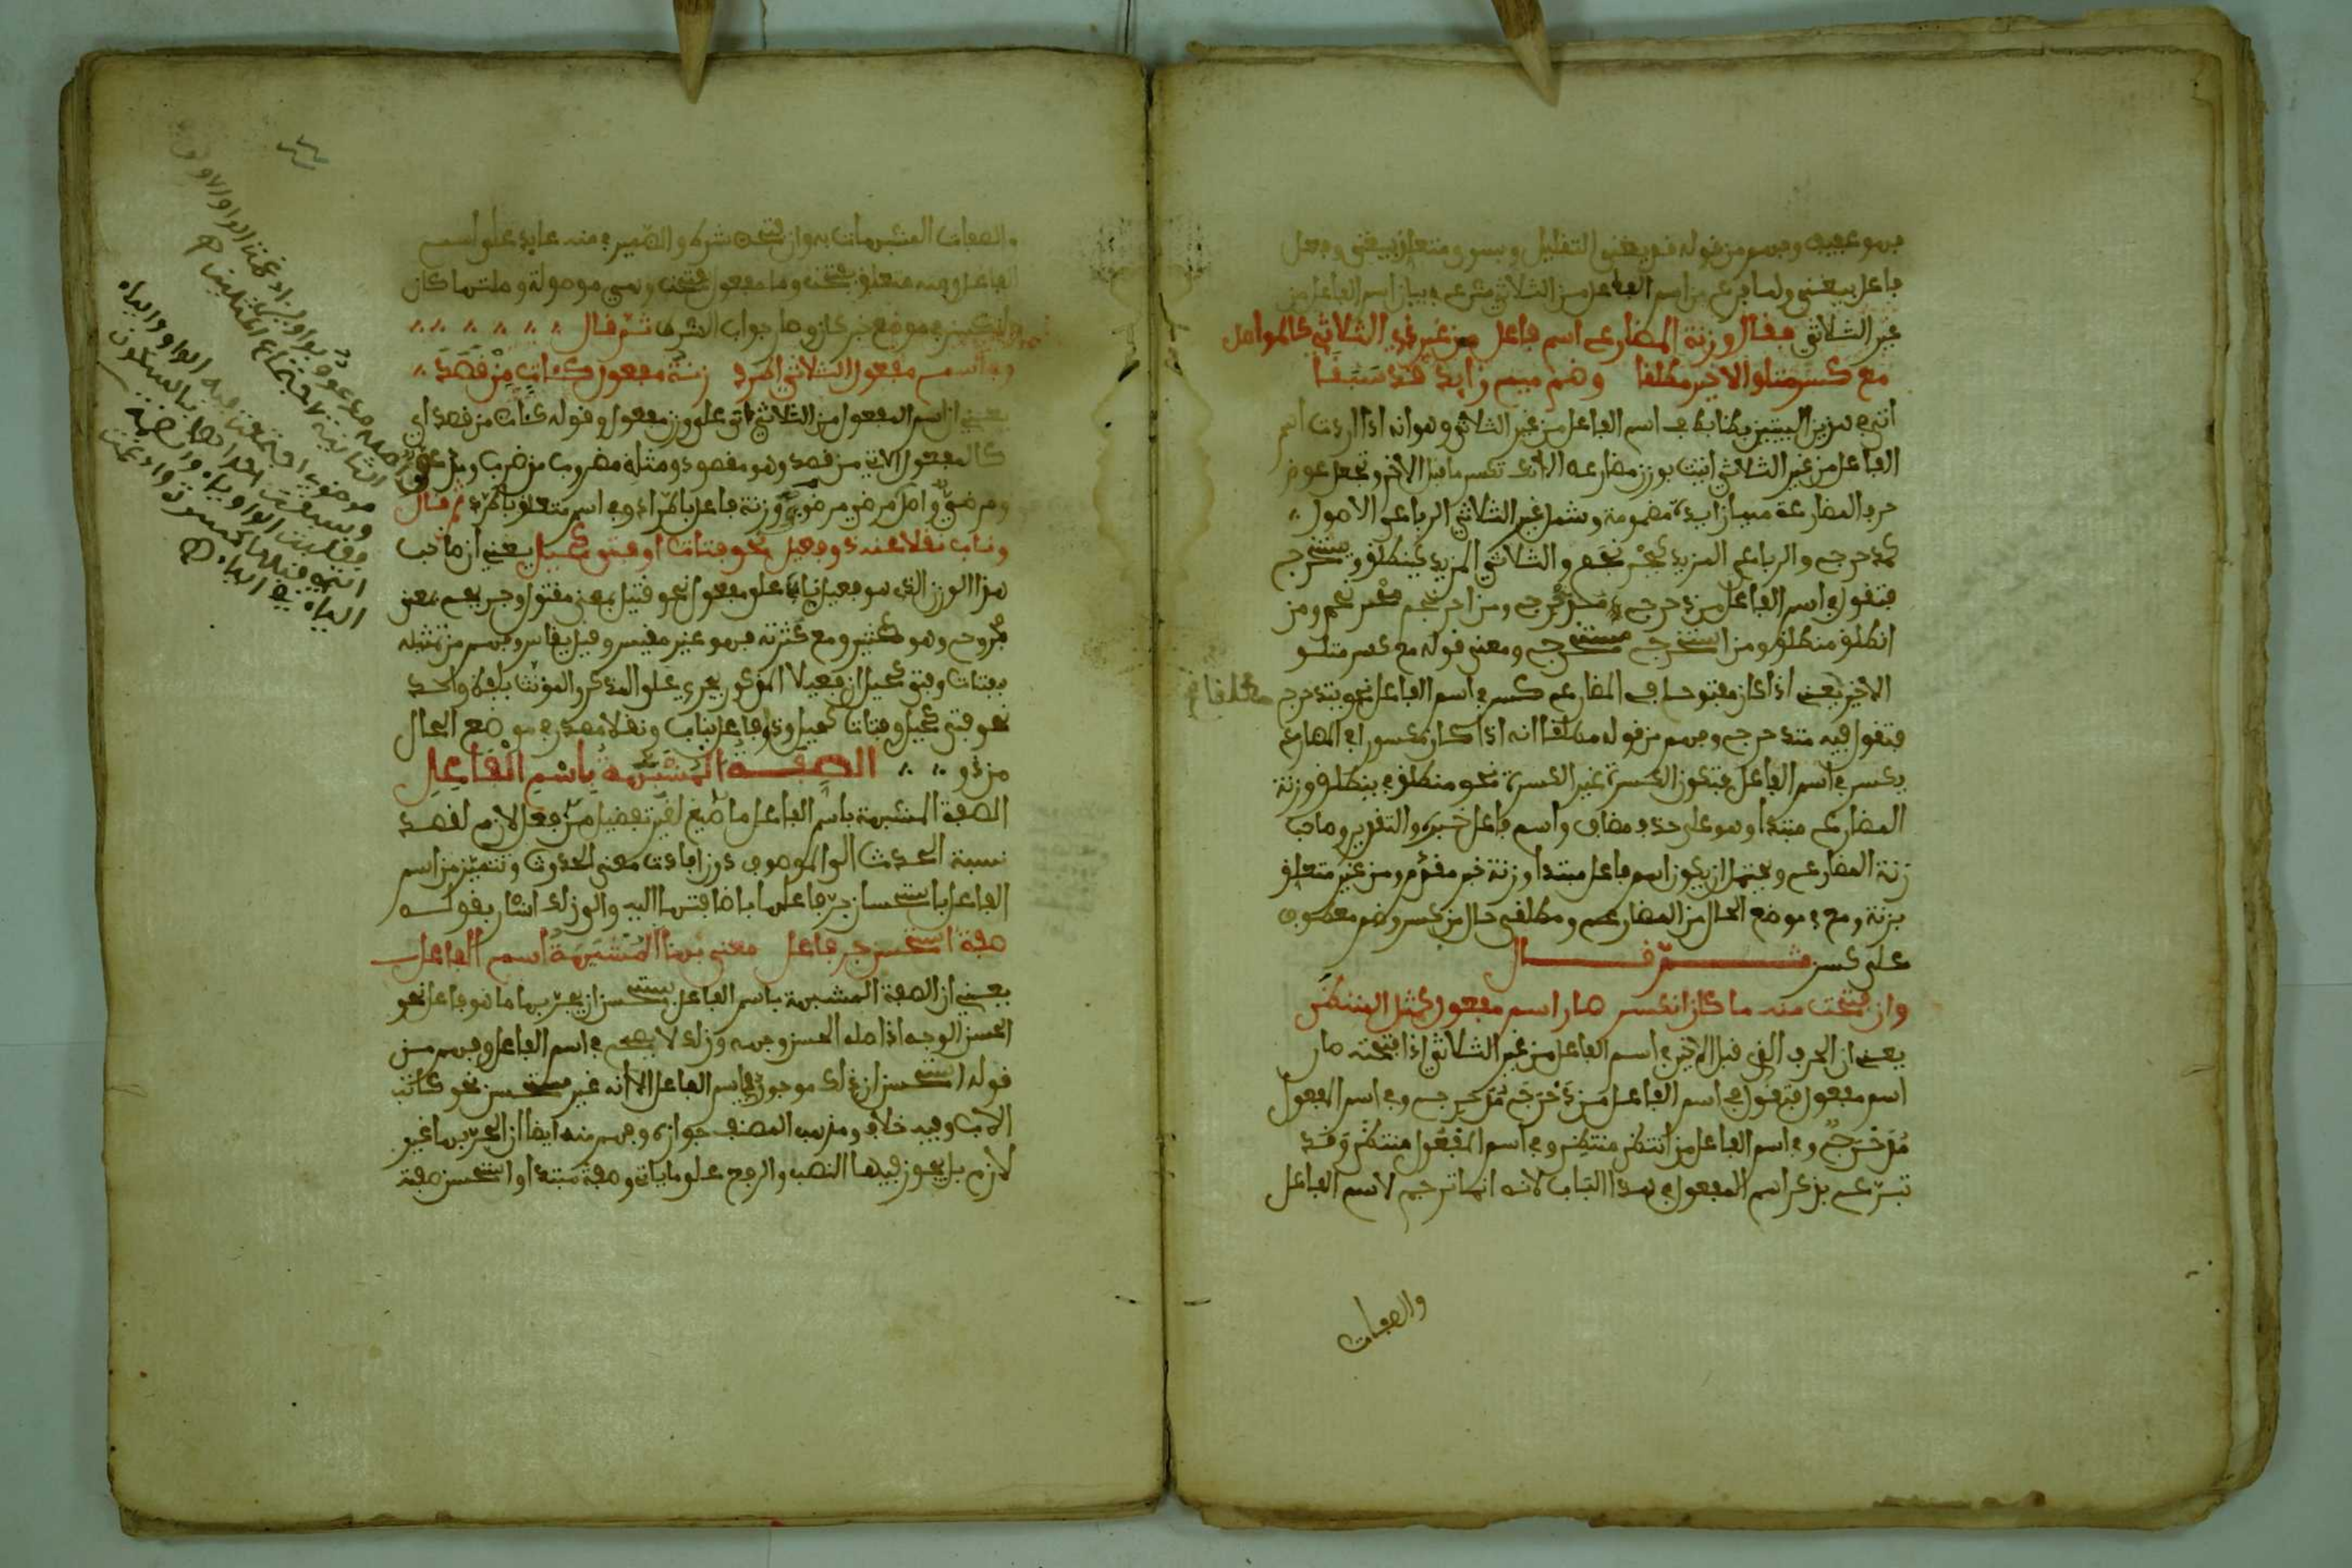 فهو عفيف وفهم من قوله قد يغنى التقليل وبسوى متعلق بيغنى وفعل
فاعل بيغنى ولما فرغ من اسم الفاعل من الثلاثي شرع في بيان اسم الفاعل من
غير الثلاثي فقال وزنة المضارع اسم فاعل من غير ذي الثلاث كالمواصل
مع كسر متلو الاخير مطلقا وضم ميم زايد قد سبقا
اتى في هذين البيتين بضابط في اسم الفاعل من غير الثلاثي وهو انه اذا اردت اسم
الفاعل من غير الثلاثي اتيت بوزن مضارعه الا انك تكسر ما قبل الاخر وتجعل عوض
حرف المضارعة ميما زايدة مضمومة وشمل غير الثلاثي الرباعي الاصول
كدحرج والرباعي المزيد كاحرنجم والثلاثي المزيد كينطلق ويستخرج
فتقول في اسم الفاعل من دحرج مدحرج ومن احرنجم محرنجم ومن
انطلق منطلق ومن استخرج مستخرج ومعنى قوله مع كسر متلو
الاخير يعني اذا كان مفتوحا في المضارع كسر في اسم الفاعل نحو يتدحرج
مطلقا
فتقول فيه متدحرج وفهم من قوله مطلقا انه اذا كان مكسورا في المضارع
يكسر في اسم الفاعل فتكون الكسرة غير الكسرة نحو منطلق في ينطلق وزنة
المضارع مبتدا وهو على حذف مضاف واسم فاعل خبره والتقدير وصاحب
زنة المضارع ويحتمل ان يكون اسم فاعل مبتدا وزنة خبر مقدم ومن غير متعلق
بزنة ومع في موضع الحال من المضارع ومطلقى حال من كسر وضم معطوف
على كسر ثم قال
وان فتحت منه ما كان انكسر صار اسم مفعول كمثل المنتظر
يعني ان الحرف الذي قبل الاخير في اسم الفاعل من غير الثلاثي اذا فتحته صار
اسم مفعول فتقول في اسم الفاعل من دحرج مدحرج وفي اسم المفعول
مدحرج وفي اسم الفاعل من انتظر منتظر وفي اسم المفعول منتظر وقد
تبرع بذكر اسم المفعول في هذا الباب لانه انما ترجم لاسم الفاعل
والصفات
والصفات المشبهات به وان فتحت شرط والضمير في منه عايد على اسم
الفاعل ومنه متعلق بفتحت وما مفعول بفتحت وهي موصولة وصلتها كان
وانكسر في موضع خبر كان وصار جواب الشرط ثم قال
وفي اسم مفعول الثلاثي اطرد زنة مفعول كات من قصد
يعني ان اسم المفعول من الثلاثي ياتي على وزن مفعول وقوله كات من قصد اي
كالمفعول الاتي من قصد وهو مقصود ومثله مضروب من ضرب
ومرضي واصل مرضي مرضوي وزنة فاعل باطرد وفي اسم متعلق باطرد ثم قال
وناب نقلا عنه ذو فعيل نحو فتاة او فتى كحيل يعني ان صاحب
هذا الوزن الذي هو فعيل ناب على مفعول نحو قتيل بمعنى مقتول وجريح بمعنى
مجروح وهو كثير ومع كثرته فهو غير مقيس وقيل يقاس وفهم من تمثيله
بفتاة وفتى كحيل ان فعيلا المذكور يجري على المذكر والمؤنث بلفظ واحد
نحو فتى كحيل وفتاة كحيل وذو فاعل بناب ونقلا مصدر في موضع الحال
من ذو الصفة المشبهة باسم الفاعل
الصفة المشبهة باسم الفاعل ما صيغ لغير تفضيل من فعل لازم لقصد
نسبة الحدث الى الموصوف دون افادة معنى الحدوث وتتميز من اسم
الفاعل باستحسان جر فاعلها باضافتها اليه والى ذلك اشار بقوله
صفة استحسن جر فاعل معنى بها المشبهة اسم الفاعل
يعني ان الصفة المشبهة باسم الفاعل يستحسن ان يجر بها ما هو فاعل نحو
الحسن الوجه اذ اصله الحسن وجهه وذلك لا يصح في اسم الفاعل وفهم من
قوله استحسن ان ذلك موجود في اسم الفاعل الا انه غير مستحسن نحو كاتب
الاب وفيه خلاف ومذهب المصنف جوازه وفهم منه ايضا ان الجر بها غير
لازم بل يجوز فيها النصب والرفع على ما ياتي وصفة مبتدا واستحسن صفة